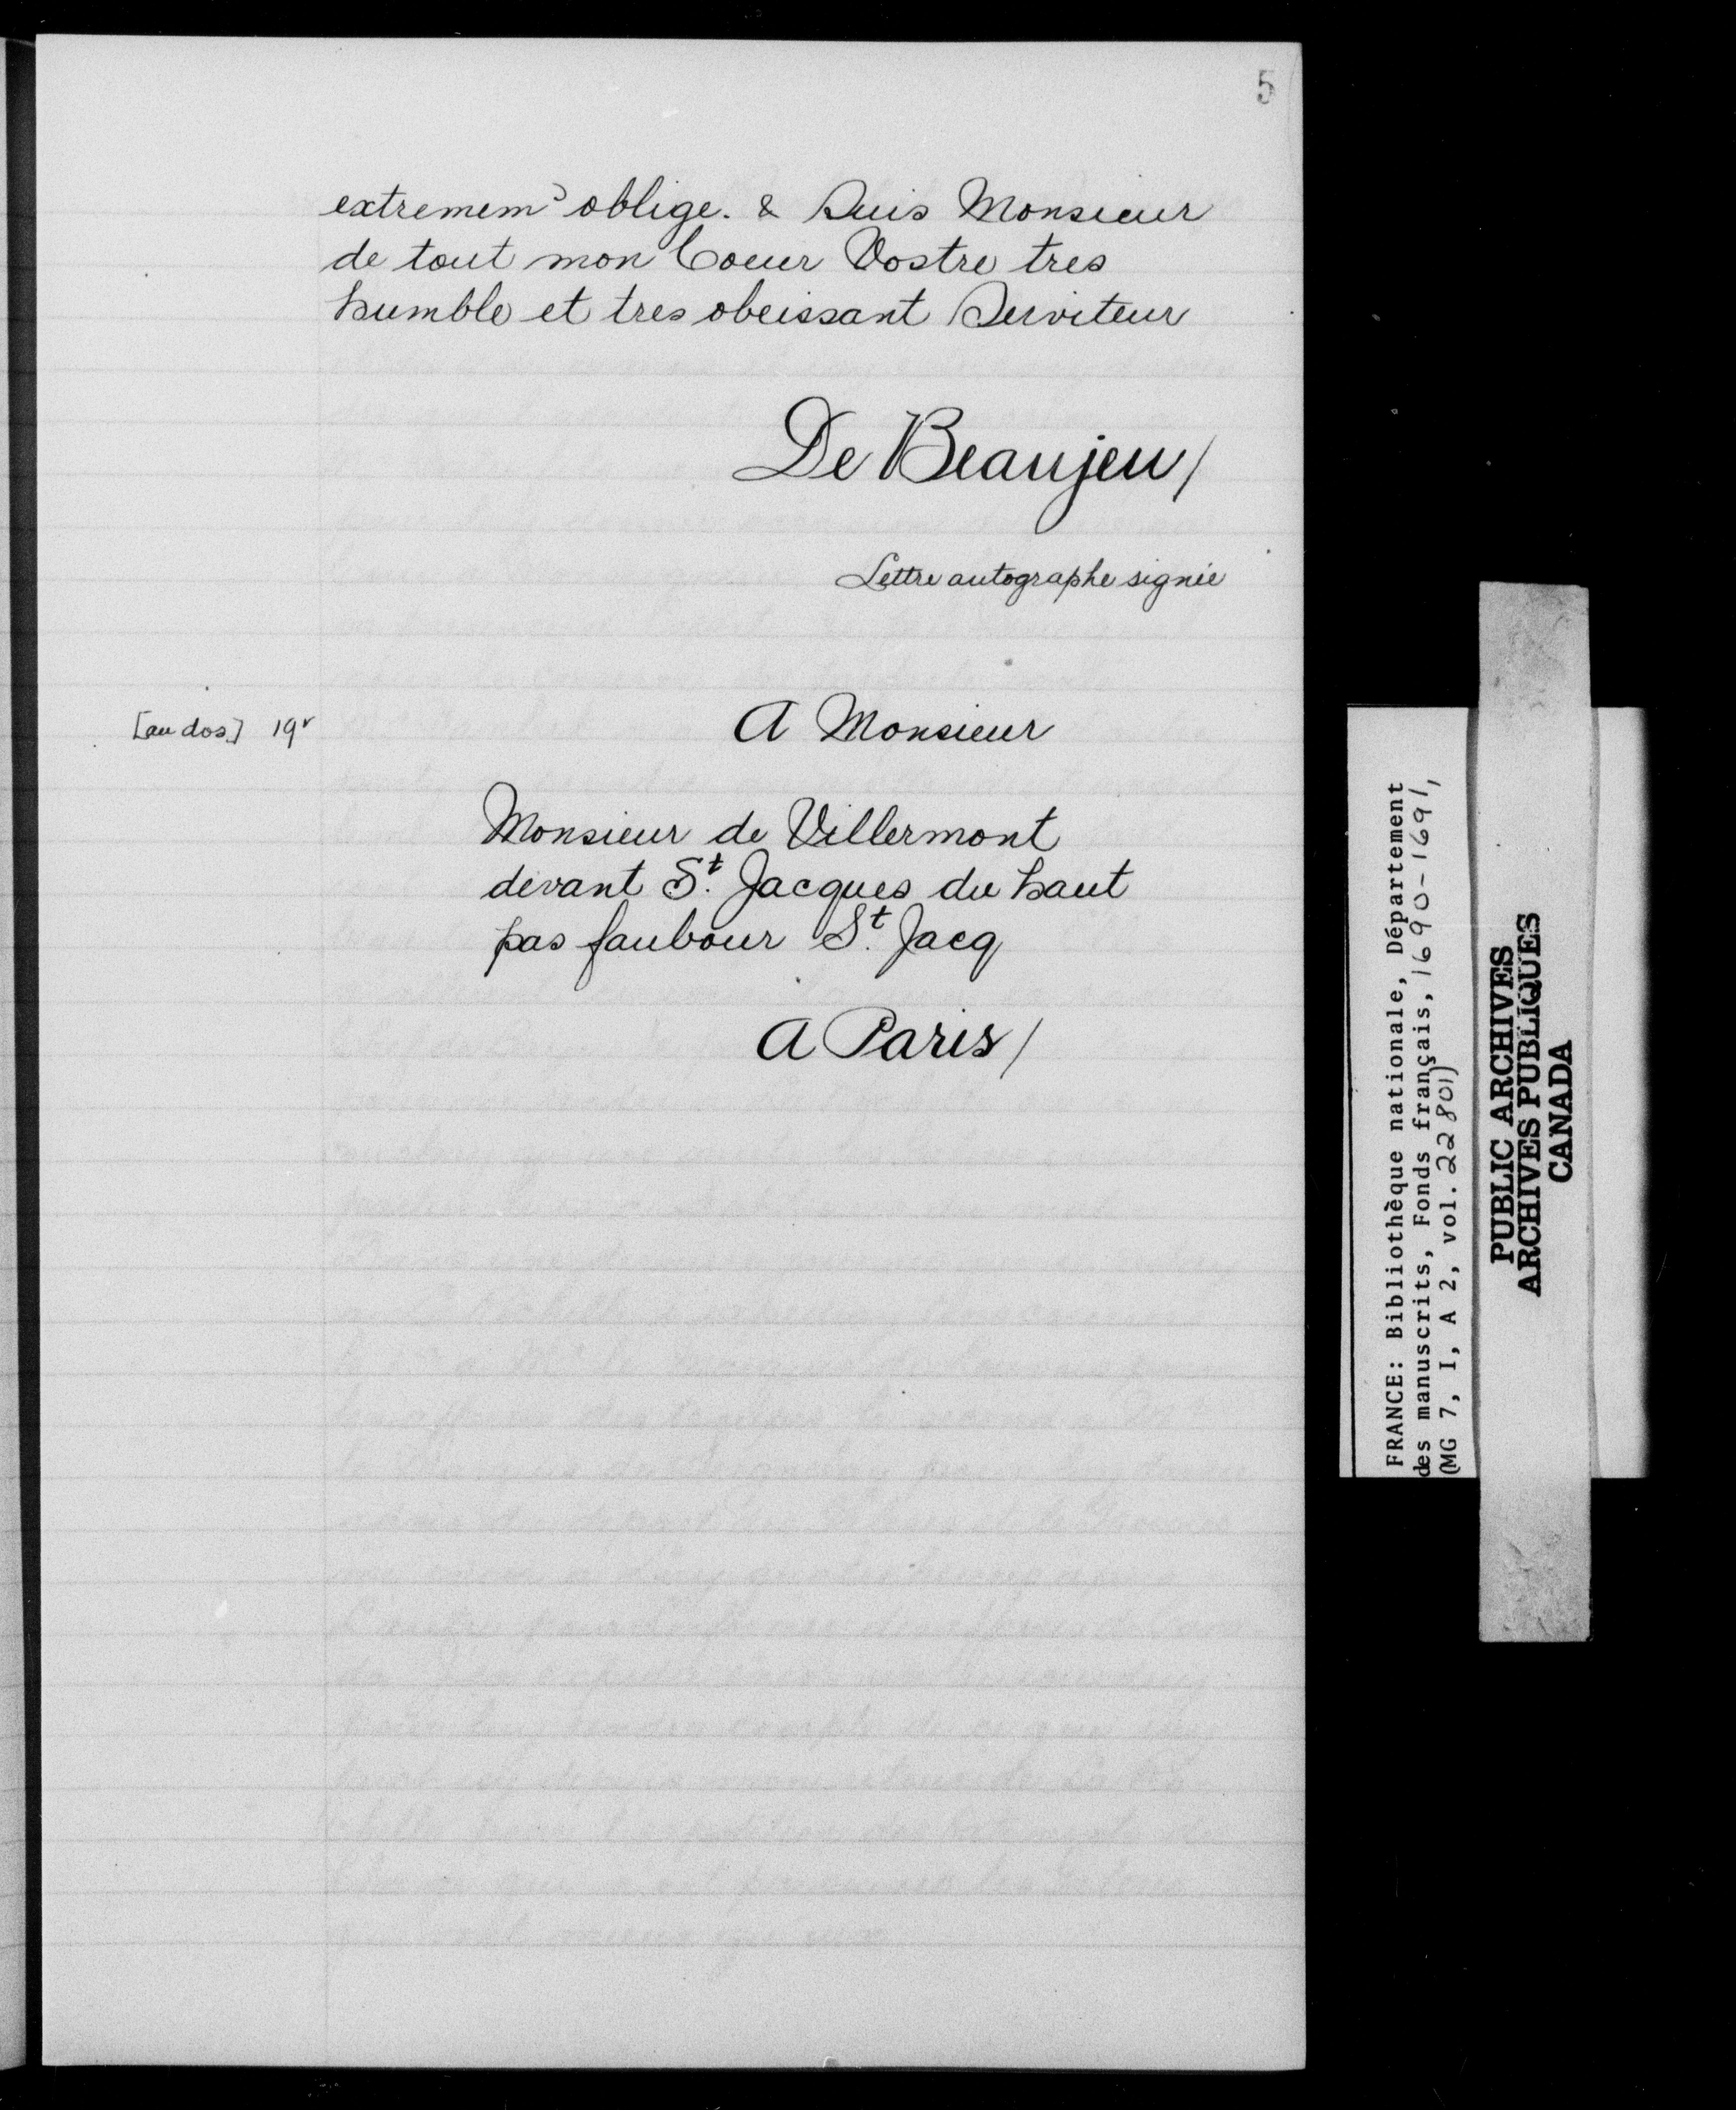 5
extremem⁾ oblige. & Suis Monsieur
de tout mon Coeur Vostre tres
humble et tres obeissant Serviteur
De Beaujeu/
Lettre autographe signée
[au dos] 19v
A Monsieur
Monsieur de Villermont
devant St. Jacques du haut
pas faubour St. Jacq
A Paris/
FRANCE: Bibliothèque nationale, Département
des manuscrits, Fonds français, 1690-1691,
(MG 7, I, A 2, vol. 22801)
PUBLIC ARCHIVES
ARCHIVES PUBLIQUES
CANADA